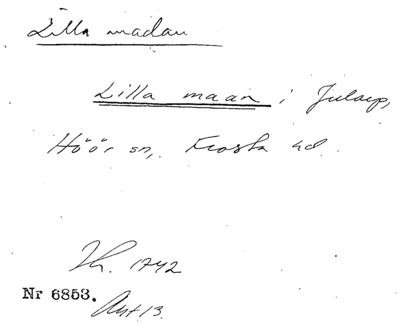 Lilla madan
Lilla maan i Jularp,
Höör sn, Frosta hd.
1742
Nr 6853.